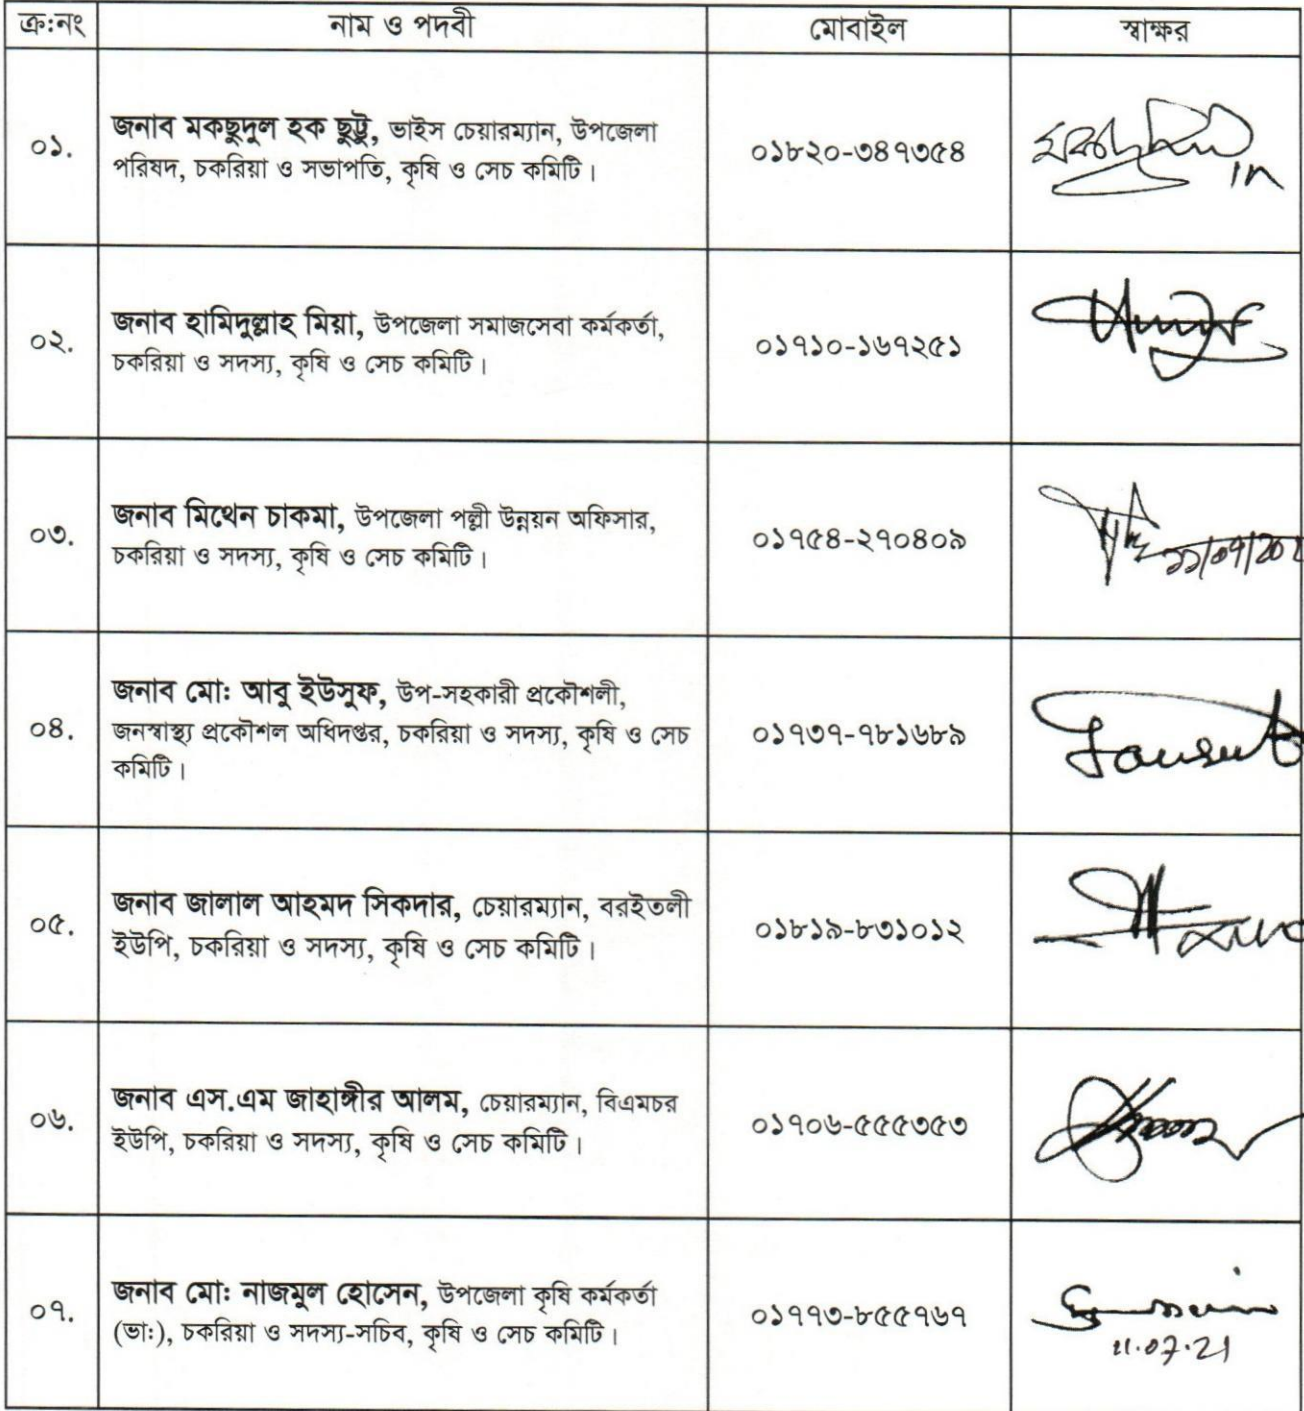 ক্র:নং নাম ও পদবী মোবাইল স্বাক্ষর
০১. জনাব মকছুদুল হক ছুট্টু, ভাইস চেয়ারম্যান, উপজেলা
পরিষদ, চকরিয়া ও সভাপতি, কৃষি ও সেচ কমিটি। ০১৮২০-৩৪৭৩৫৪
০২. জনাব হামিদুল্লাহ মিয়া, উপজেলা সমাজসেবা কর্মকর্তা,
চকরিয়া ও সদস্য, কৃষি ও সেচ কমিটি। ০১৭১০-১৬৭২৫১
০৩. জনাব মিথেন চাকমা, উপজেলা পল্লী উন্নয়ন অফিসার,
চকরিয়া ও সদস্য, কৃষি ও সেচ কমিটি। ০১৭৫৪-২৭০৪০৯
০৪. জনাব মো: আবু ইউসুফ, উপ-সহকারী প্রকৌশলী,
জনস্বাস্থ্য প্রকৌশল অধিদপ্তর, চকরিয়া ও সদস্য, কৃষি ও সেচ
কমিটি। ০১৭৩৭-৭৮১৬৮৯
০৫. জনাব জালাল আহমদ সিকদার, চেয়ারম্যান, বরইতলী
ইউপি, চকরিয়া ও সদস্য, কৃষি ও সেচ কমিটি। ০১৮১৯-৮৩১০১২
০৬. জনাব এস.এম জাহাঙ্গীর আলম, চেয়ারম্যান, বিএমচর
ইউপি, চকরিয়া ও সদস্য, কৃষি ও সেচ কমিটি। ০১৭০৬-৫৫৫৩৫৩
০৭. জনাব মো: নাজমুল হোসেন, উপজেলা কৃষি কর্মকর্তা
(ভা:), চকরিয়া ও সদস্য-সচিব, কৃষি ও সেচ কমিটি। ০১৭৭৩-৮৫৫৭৬৭
11.07.21